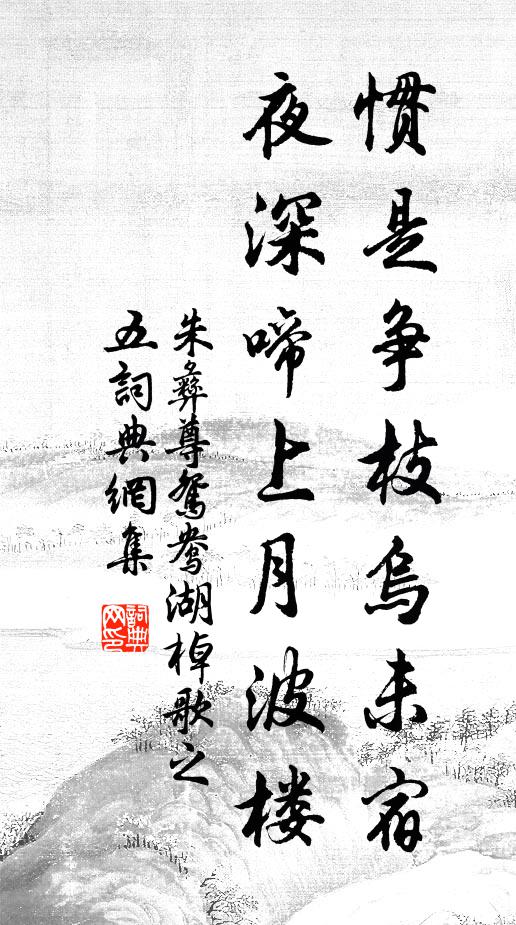 慣是争枝烏未宿
夜深啼上月波楼
朱彝尊鴛鴦湖棹歌之
五詞典網集
詞典
网印